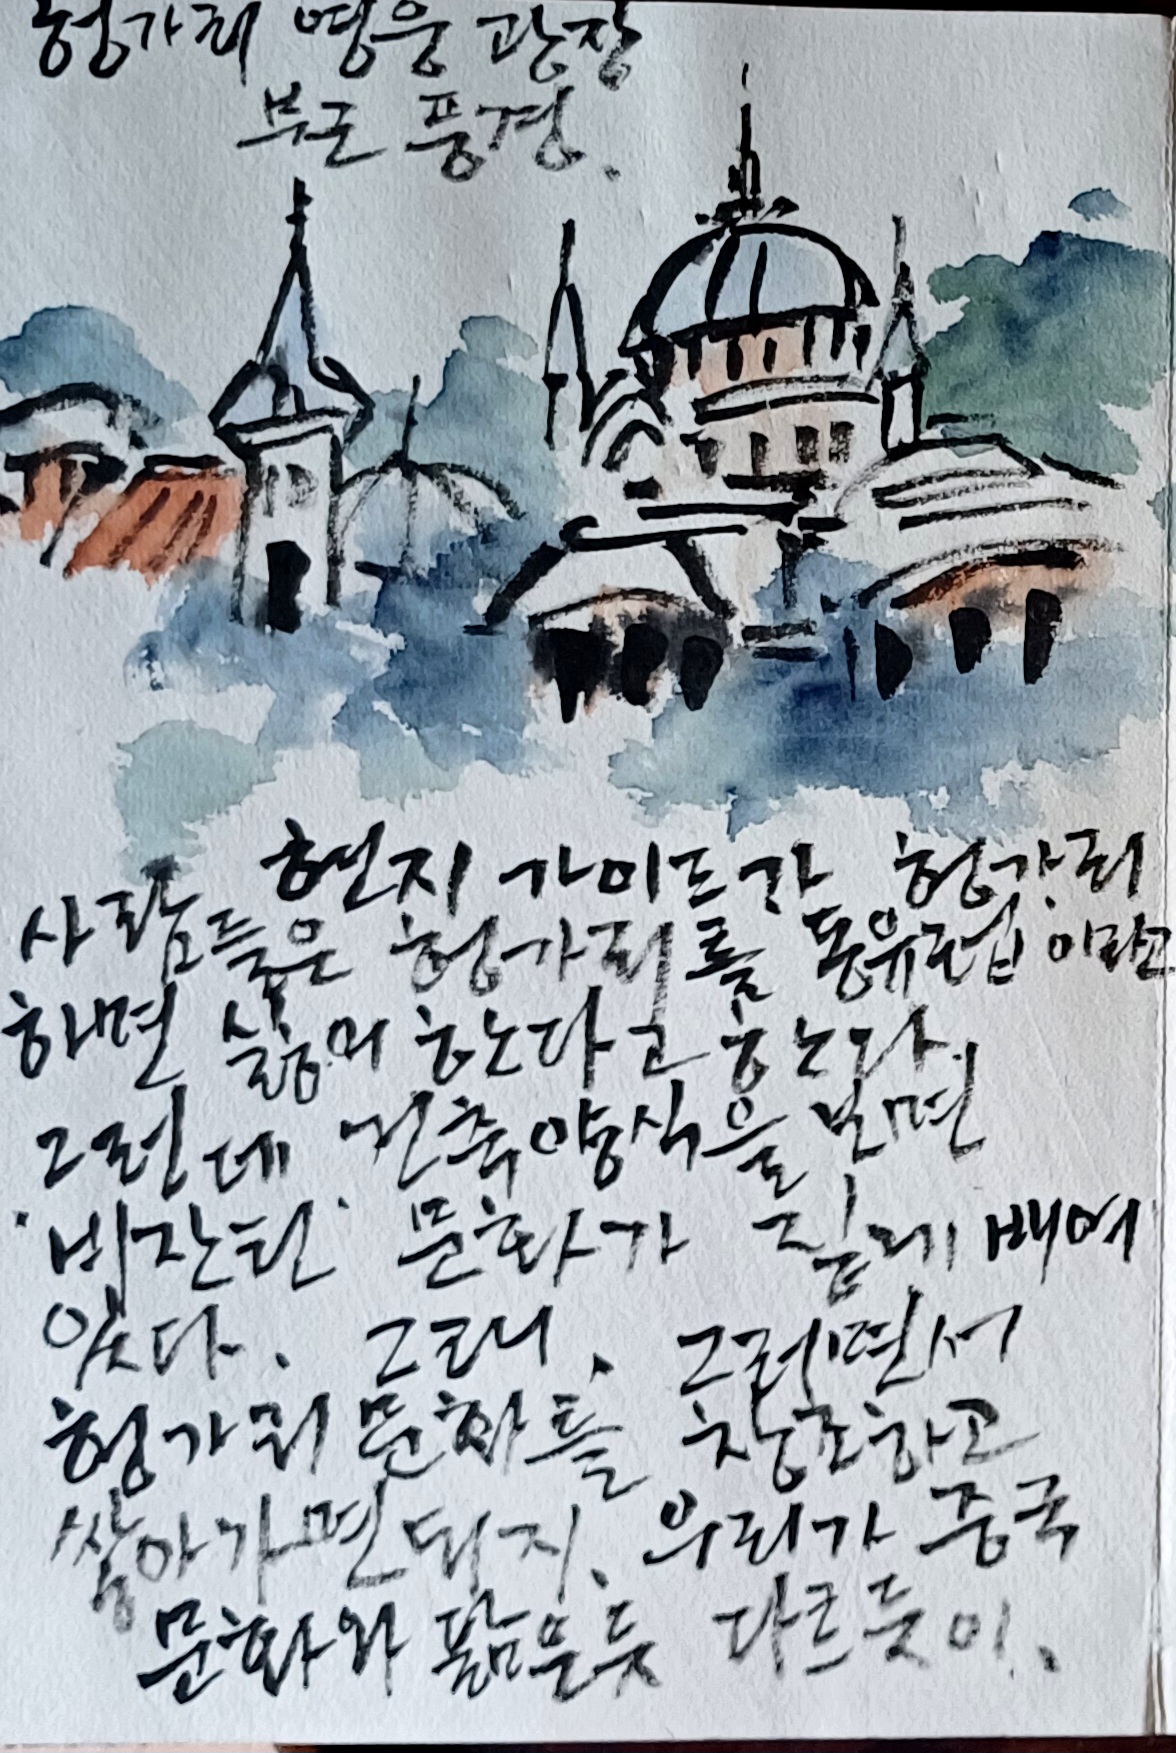 헝가리 영웅 광장
부근 풍경.
현지 가이드가 헝가리
사람들은 헝가리를 동유럽이라고
하면 싫어 한다고 한다.
그런데 건축양식을 보면
'비잔틴' 문화가 짙게 배여
있다. 그래. 그러면서
헝가리 문화를 창조하고
쌓아가면 되지. 우리가 중국
문화와 닮은듯 다르듯이.